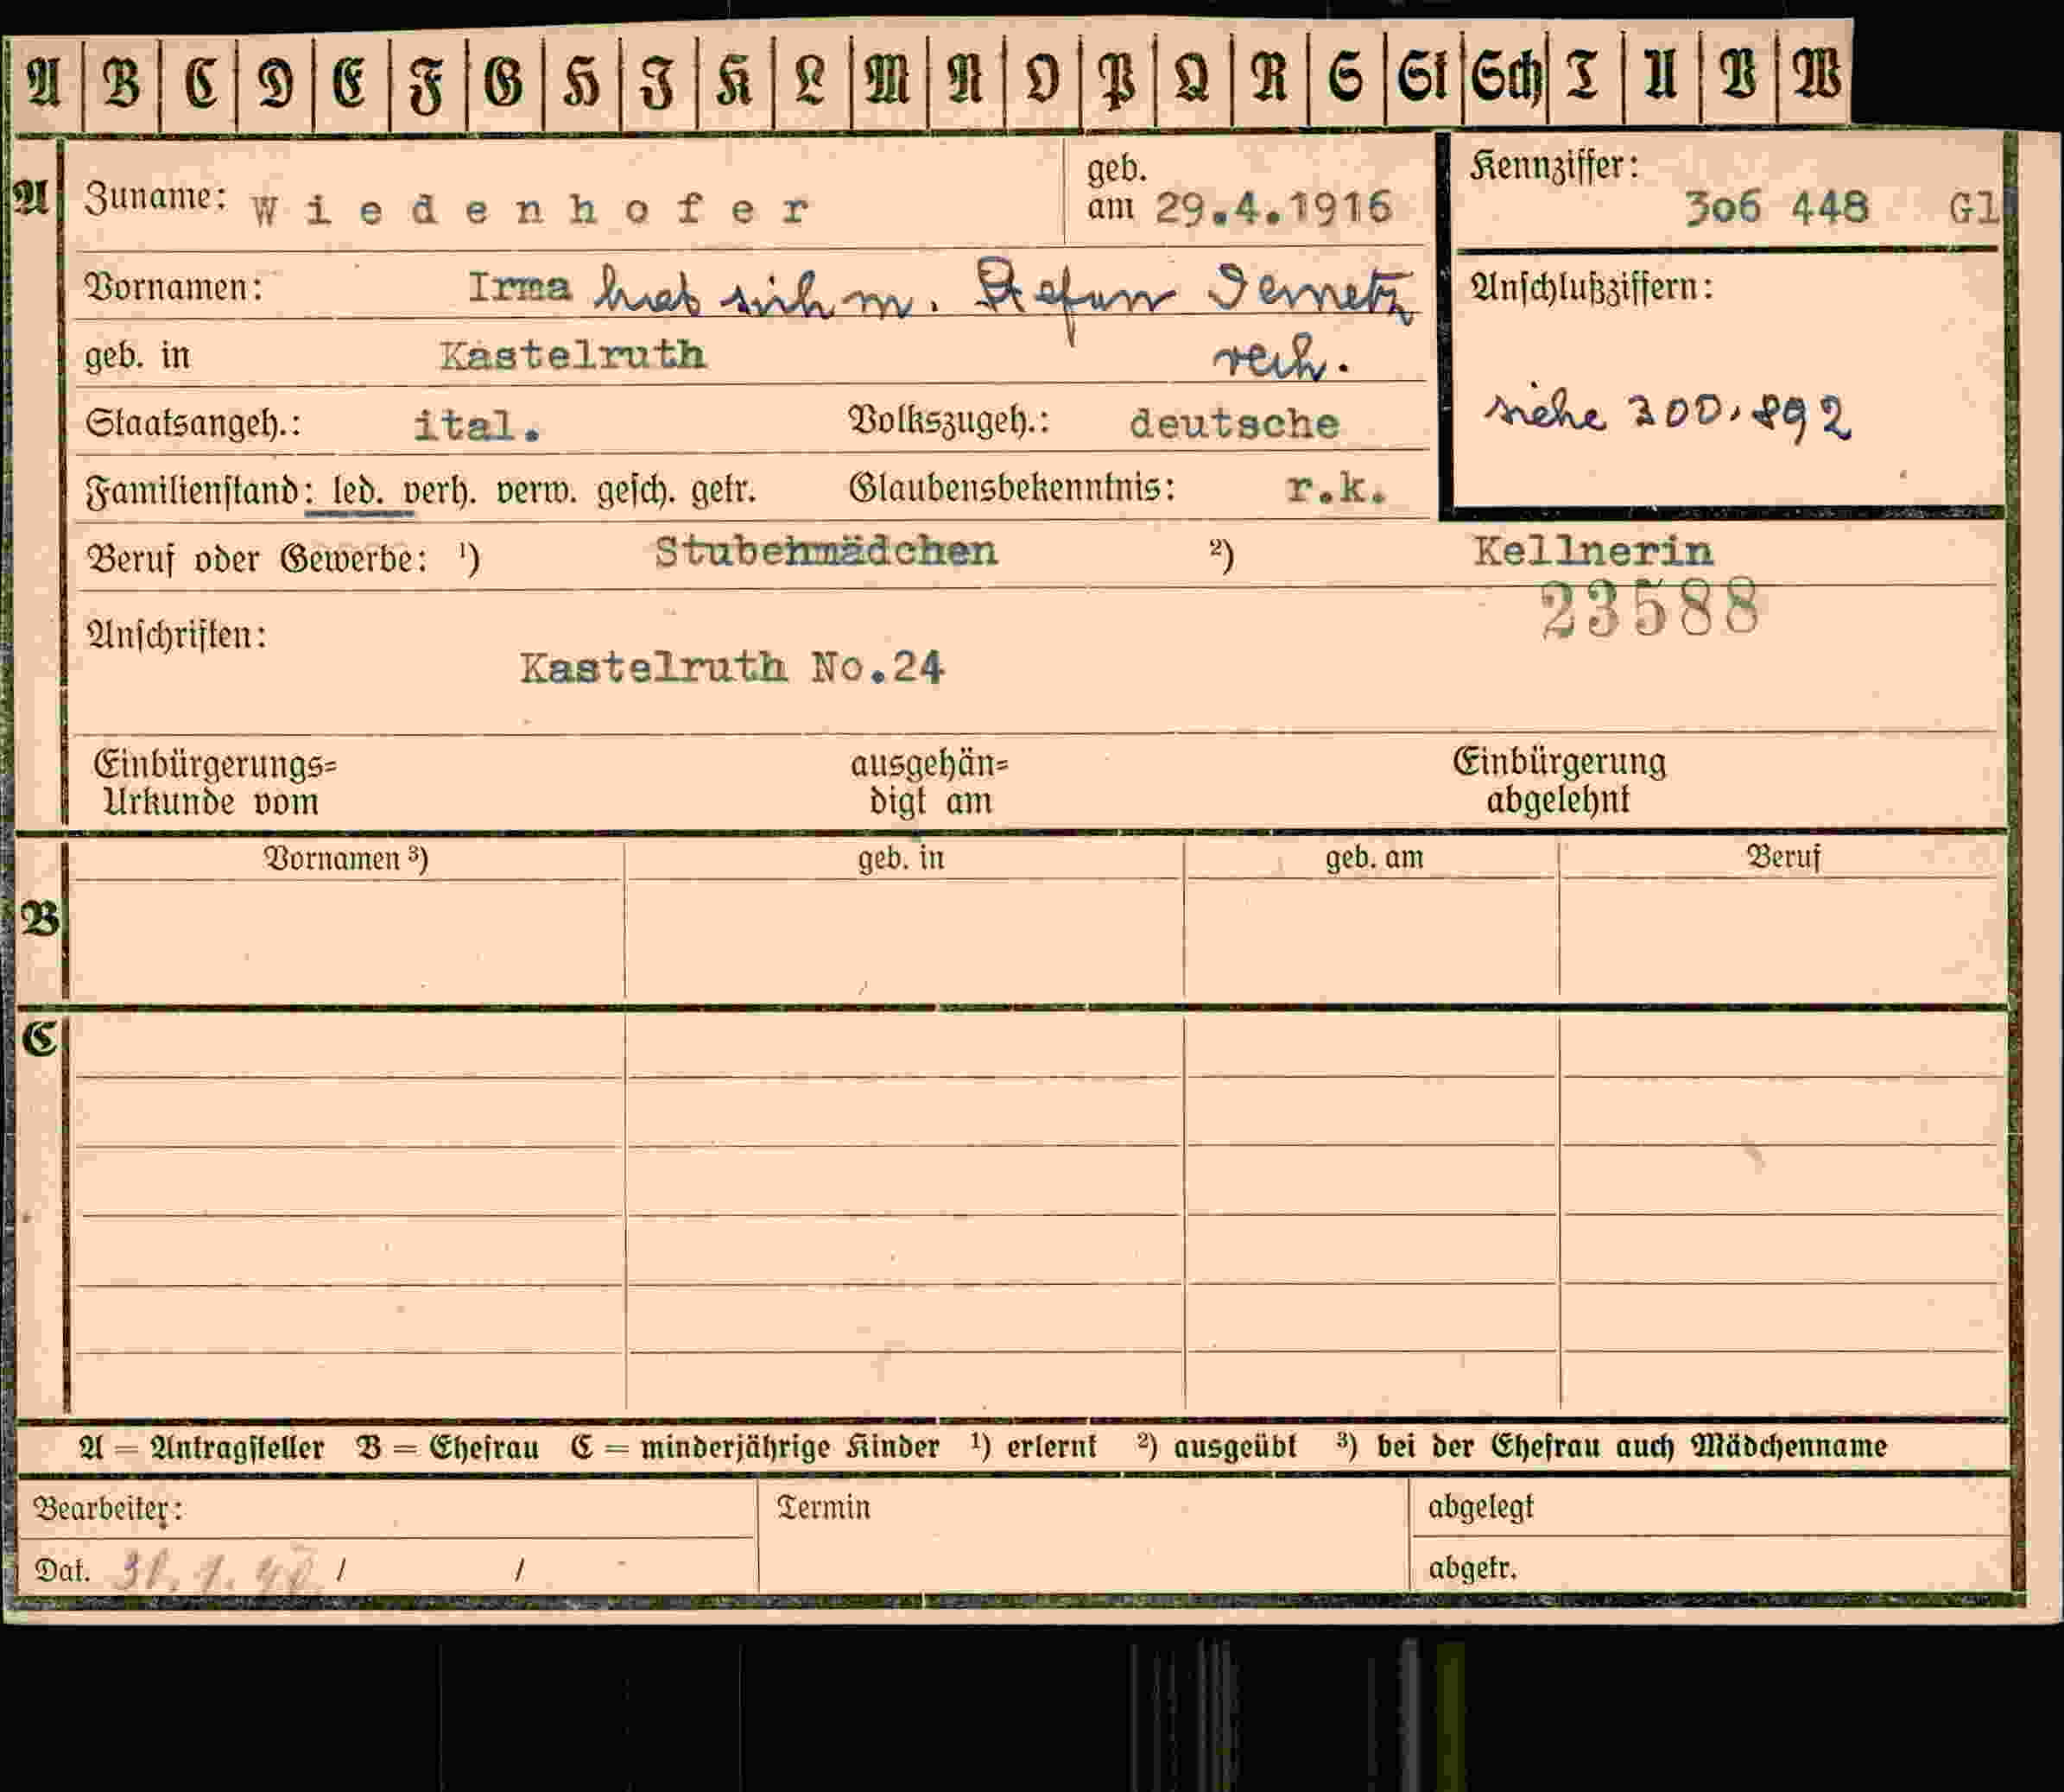 A B C D E F G H J K L M N O P Q R S St Sch T U V W
A Zuname: Wiedenhofer geb. am 29.4.1916 Kennziffer: 306 448 Gl
Vornamen: Irma hat sich m. Stefan Jernetz Anschlußziffern:
geb. in Kastelruth vereh.
Staatsangeh.: ital. Volkszugeh.: deutsche siehe 300.892
Familienstand: led. verh. verw. gesch. getr. Glaubensbekenntnis: r.k.
Beruf oder Gewerbe: ¹) Stubenmädchen ²) Kellnerin
23588
Anschriften:
Kastelruth No.24
Einbürgerungs= ausgehän= Einbürgerung
Urkunde vom digt am abgelehnt
Vornamen ³) geb. in geb. am Beruf
B
C
A = Antragsteller B = Ehefrau C = minderjährige Kinder ¹) erlernt ²) ausgeübt ³) bei der Ehefrau auch Mädchenname
Bearbeiter: Termin abgelegt
Dat. / / abgetr.